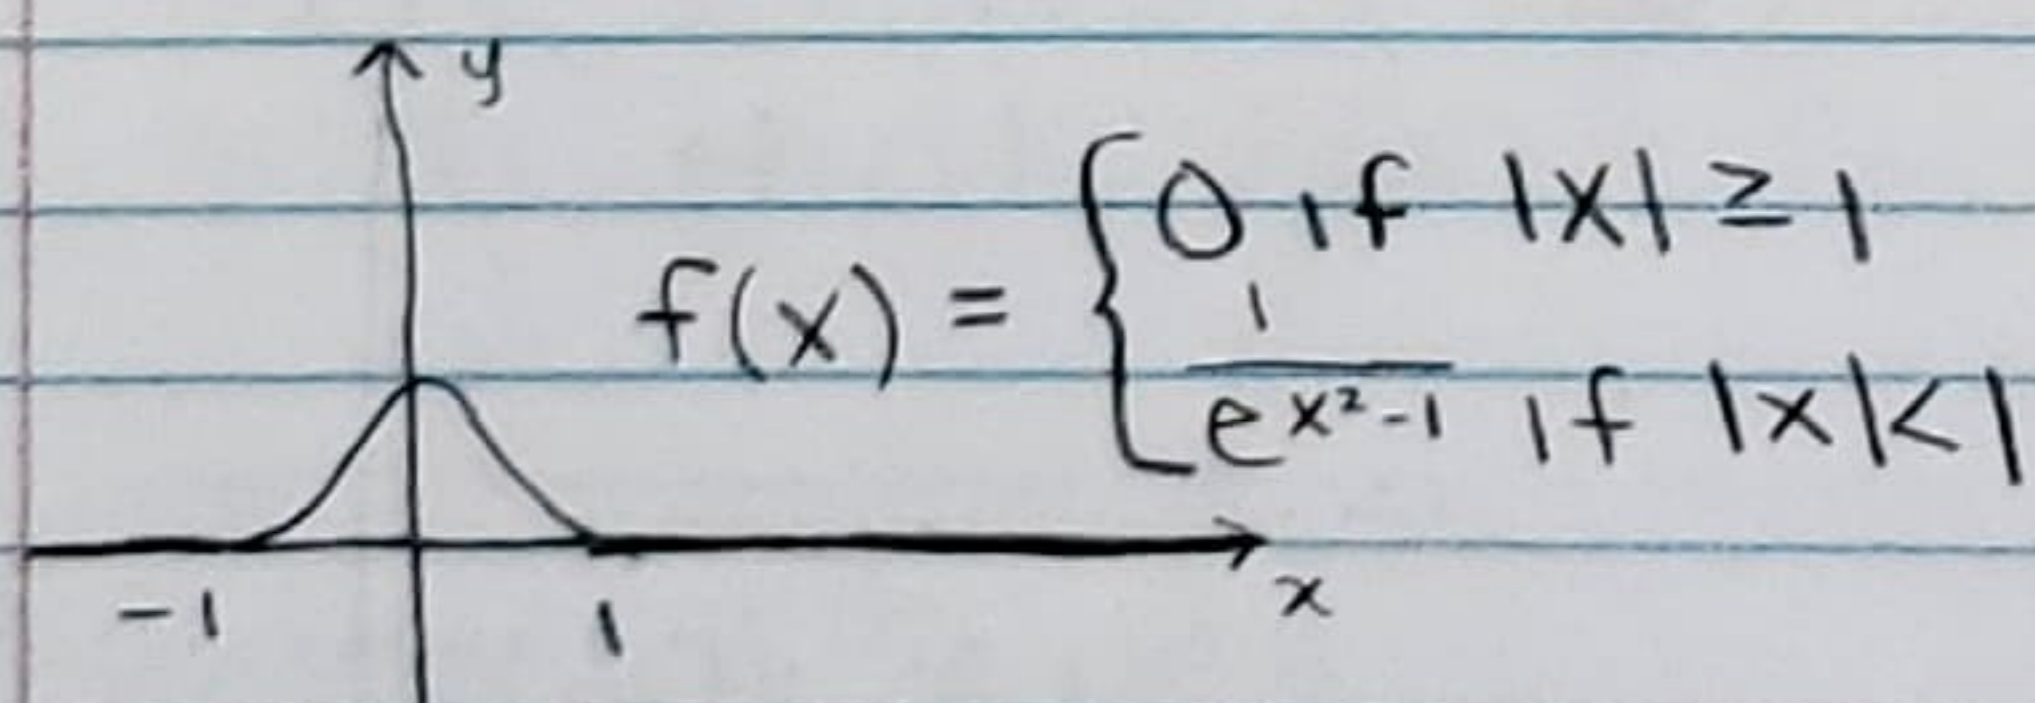 y
f(x) = { 0 if |x| ≥ 1
1
e^{x²-1} if |x|<1
-1 1 x